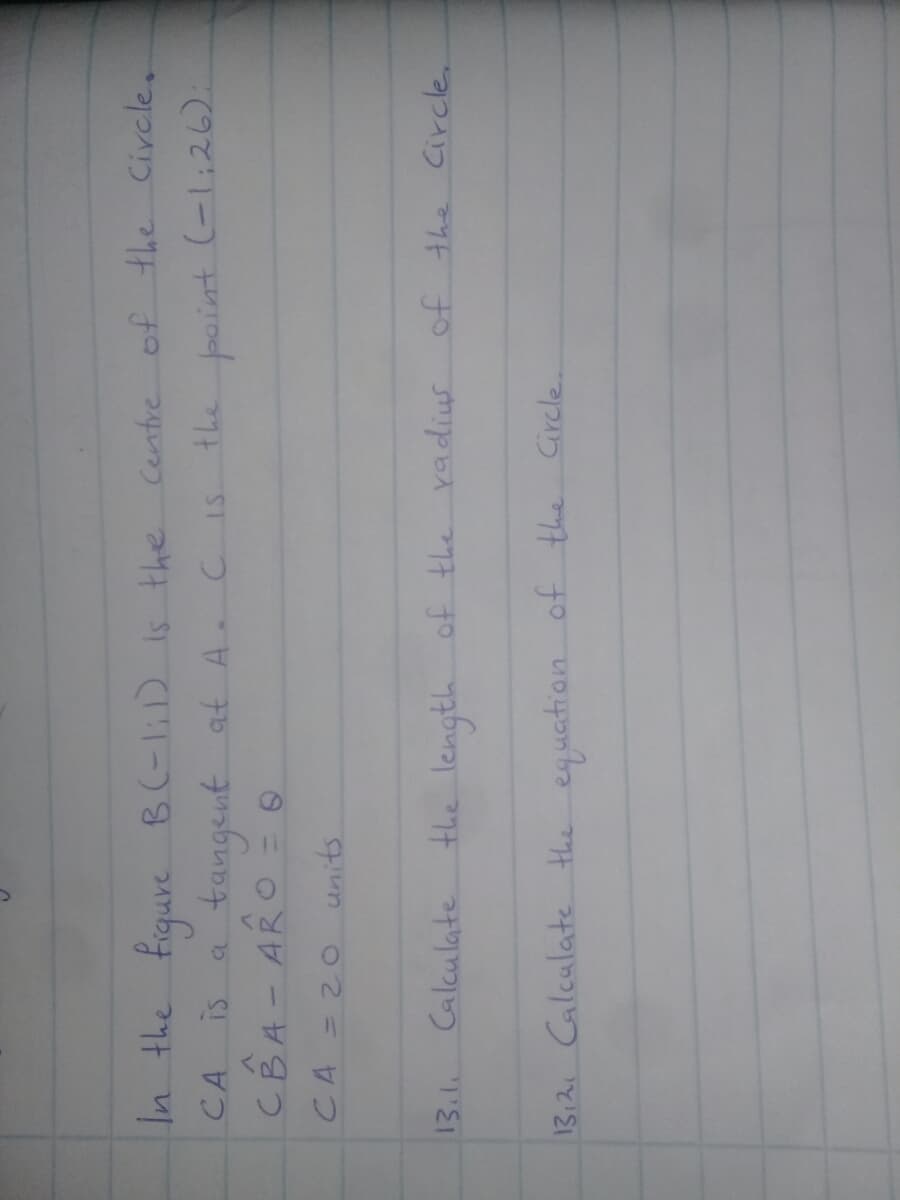 In the figure B(-1;1) is the Centre of the Circle.
CA is a tangent at A. C is the point (-1;26).
CB̂A - AR̂O = θ
CA = 20 units
13.1. Calculate the length of the radius of the Circle.
13.2. Calculate the equation of the Circle.